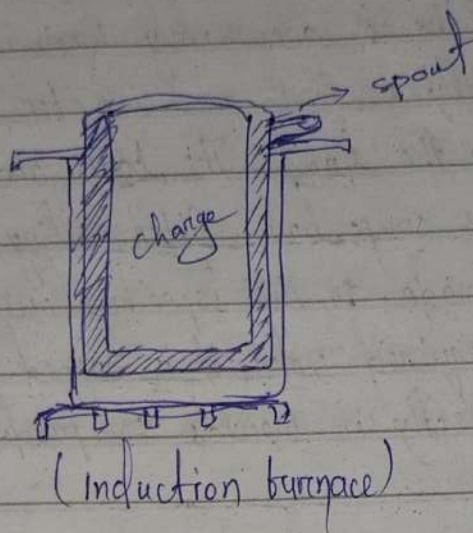 spout
charge
(Induction furnace)